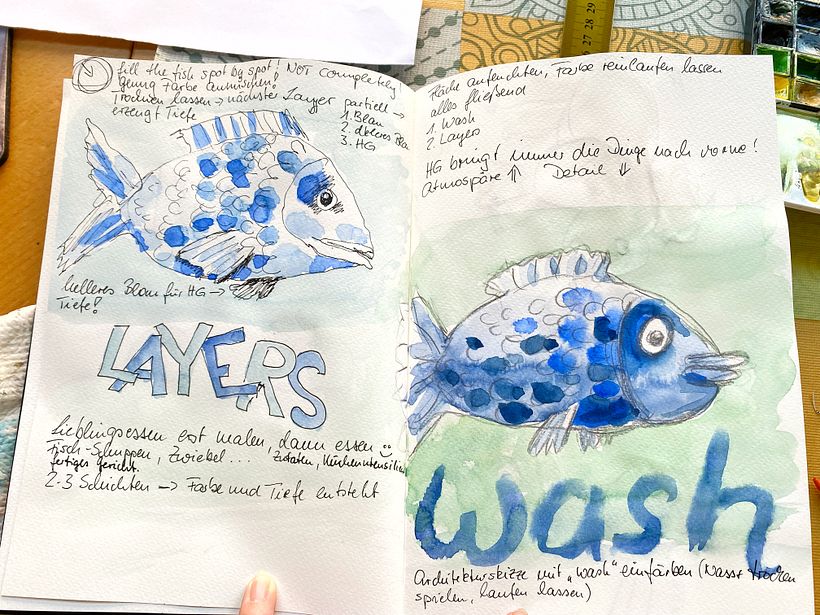 fill the fish spot by spot! NOT completely!
genug Farbe anmischen!
Trocknen lassen → nächster Layer partiell →
erzeugt Tiefe
1. Blau
2. dkleres Blau
3. HG
helleres Blau für HG →
Tiefe!
LAYERS
Lieblingsessen erst malen, dann essen
Fisch-Schuppen, Zwiebel... Zutaten, Küchenutensilien
fertiges Gericht.
2-3 Schichten → Farbe und Tiefe entsteht
Fläche anfeuchten, Farbe reinlaufen lassen
alles fließend
1. Wash
2. Layers
HG bringt immer die Dinge nach vorne!
Atmospäre ⇑ Detail ⇓
wash
Architekturskizze mit „wash“ einfärben (Nass + trocken
spielen, laufen lassen)
27 28 29